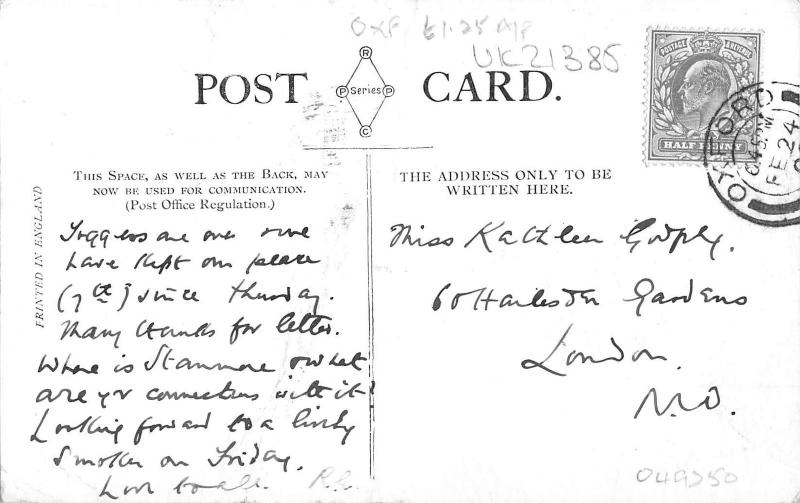 OXF £1.25 A/P
UK21385
POST CARD.
R
P Series P
C
POSTAGE & REVENUE
HALF PENNY
OXFORD
6.45 PM
FE 24
THIS SPACE, AS WELL AS THE BACK, MAY
NOW BE USED FOR COMMUNICATION.
(Post Office Regulation.)
PRINTED IN ENGLAND
Toggers are over & we
have kept our place
(7th) since Thursday.
Many thanks for letter.
Where is Stanmore & what
are yr connections with it?
Looking forward to a lively
Smoker on Friday.
Love to all. R.
THE ADDRESS ONLY TO BE
WRITTEN HERE.
Miss Kathleen
60 Gardens
London.
N.W.
049250